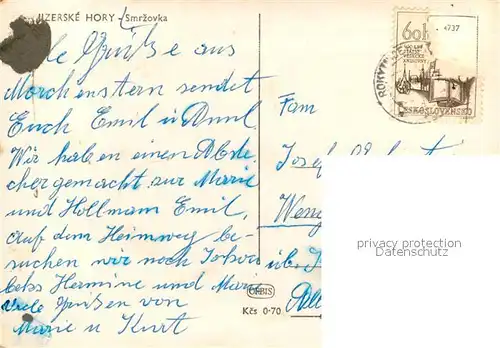 JIZERSKÉ HORY - Smržovka
Viele Grüße aus
Morchenstern sendet
Euch Emil u
Wir haben einen Abste-
cher gemacht zur Marie
und Hollmann Emil,
Auf dem Heimweg be-
suchen wir noch
Hermine und Marie
viele Grüßen von
Marie u Kurt
Fam
Josef
über
60h
+737
ČESKOSLOVENSKO
privacy protection
Datenschutz
ORBIS
Kčs 0·70